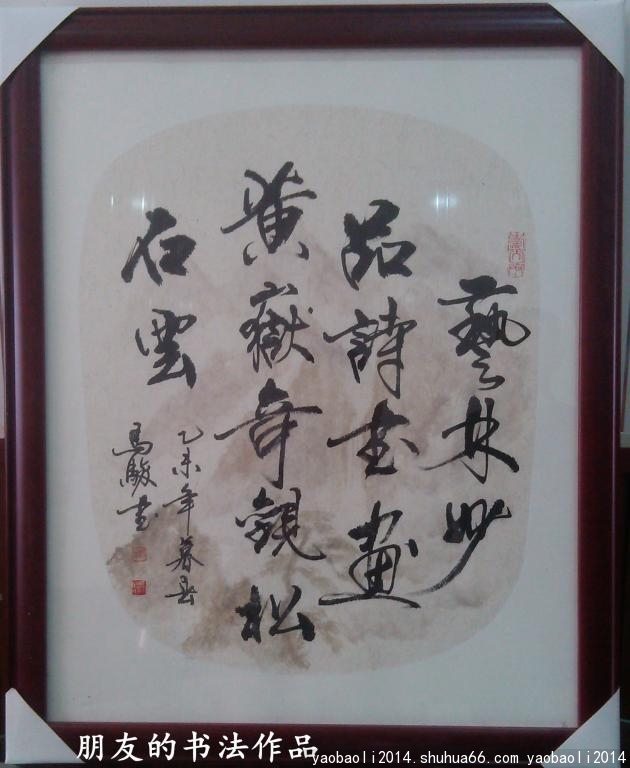 藝林妙
品詩书畫
黄嶽奇觀松
石雲
乙未年暮春
馬駿书
朋友的书法作品
yaobaoli2014.shuhua66.com yaobaoli2014